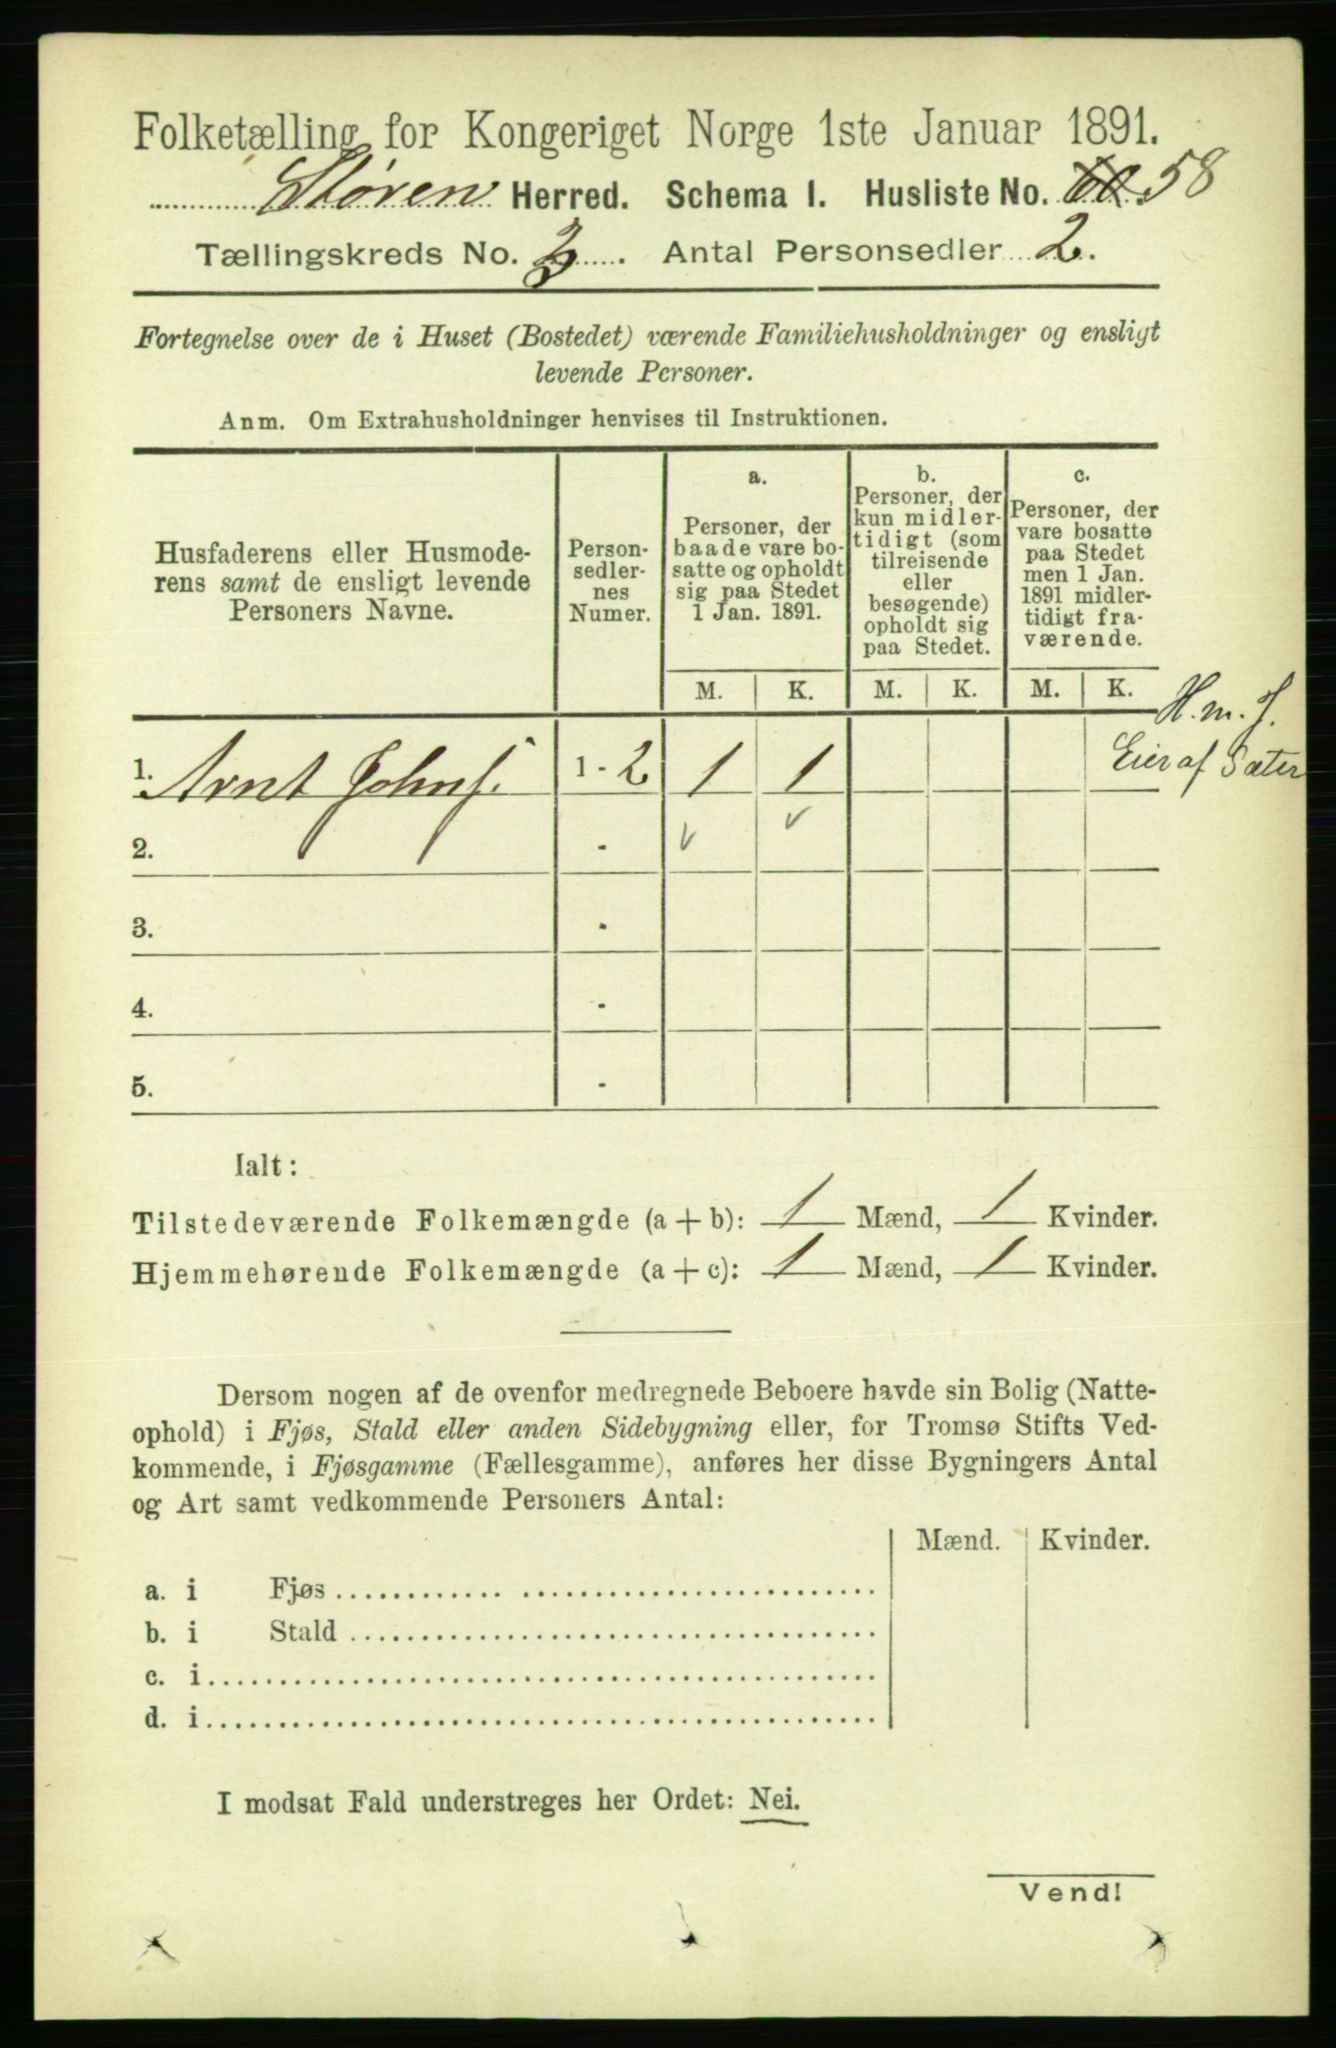 Folketælling for Kongeriget Norge 1ste Januar 1891.
Støren Herred. Schema I. Husliste No. 58
Tællingskreds No. 3. Antal Personsedler 2.
Fortegnelse over de i Huset (Bostedet) værende Familiehusholdninger og ensligt
levende Personer.
Anm. Om Extrahusholdninger henvises til Instruktionen.
Husfaderens eller Husmode-
rens samt de ensligt levende
Personers Navne.
Person-
sedler-
nes
Numer.
a.
Personer, der
baade vare bo-
satte og opholdt
sig paa Stedet
1 Jan. 1891.
b.
Personer, der
kun midler-
tidigt (som
tilreisende
eller
besøgende)
opholdt sig
paa Stedet.
c.
Personer, der
vare bosatte
paa Stedet
men 1 Jan.
1891 midler-
tidigt fra-
værende.
M. K. M. K. M. K.
H. m. J.
1. Arnt Johns. 1 - 2 1 1 Eier af Sæter
2. - v v
3. -
4. -
5. -
Ialt:
Tilstedeværende Folkemængde (a + b): 1 Mænd, 1 Kvinder.
Hjemmehørende Folkemængde (a + c): 1 Mænd, 1 Kvinder.
Dersom nogen af de ovenfor medregnede Beboere havde sin Bolig (Natte-
ophold) i Fjøs, Stald eller anden Sidebygning eller, for Tromsø Stifts Ved-
kommende, i Fjøsgamme (Fællesgamme), anføres her disse Bygningers Antal
og Art samt vedkommende Personers Antal:
Mænd. Kvinder.
a. i Fjøs
b. i Stald
c. i
d. i
I modsat Fald understreges her Ordet: Nei.
Vend!